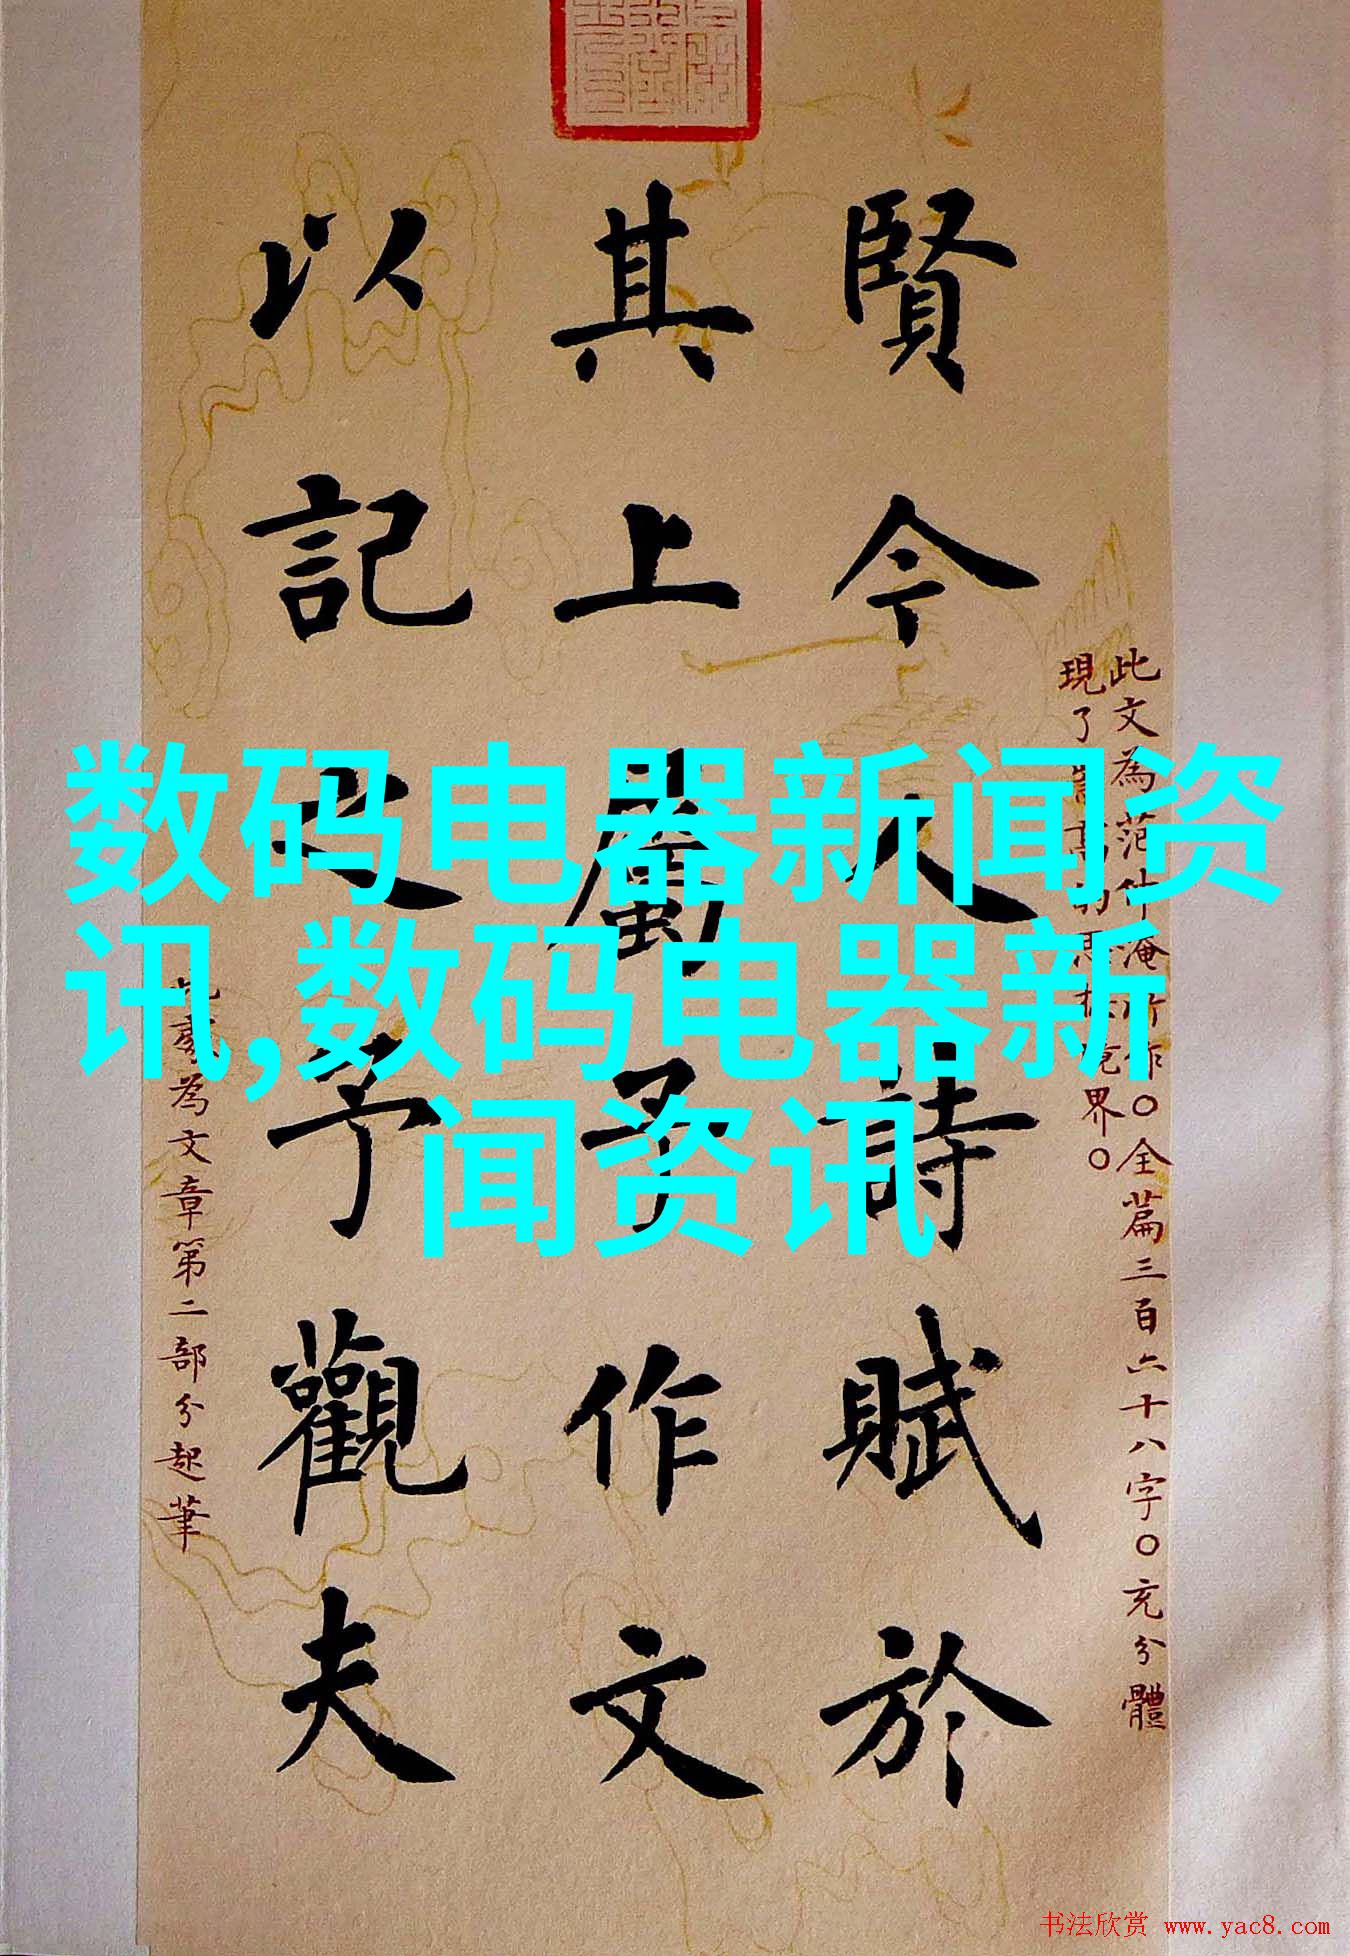 賢今人詩賦於
其上屬予作文
以記之予觀夫
此文為范仲淹所作○全篇三百六十八字○充分體
現了
界○
為文章第二部分起筆
数码电器新闻资
讯,数码电器新
闻资讯
书法欣赏 www.yac8.com